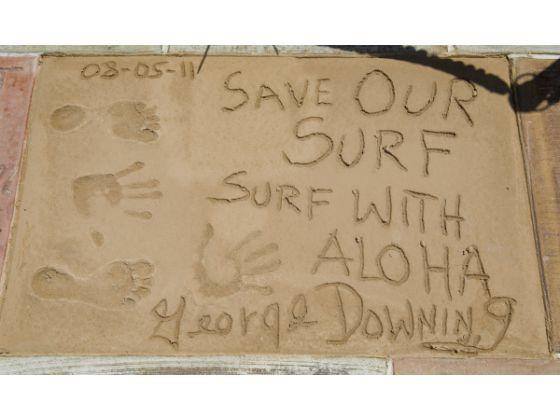 08-05-11
SAVE OUR
SURF
SURF WITH
ALOHA
George DOWNING